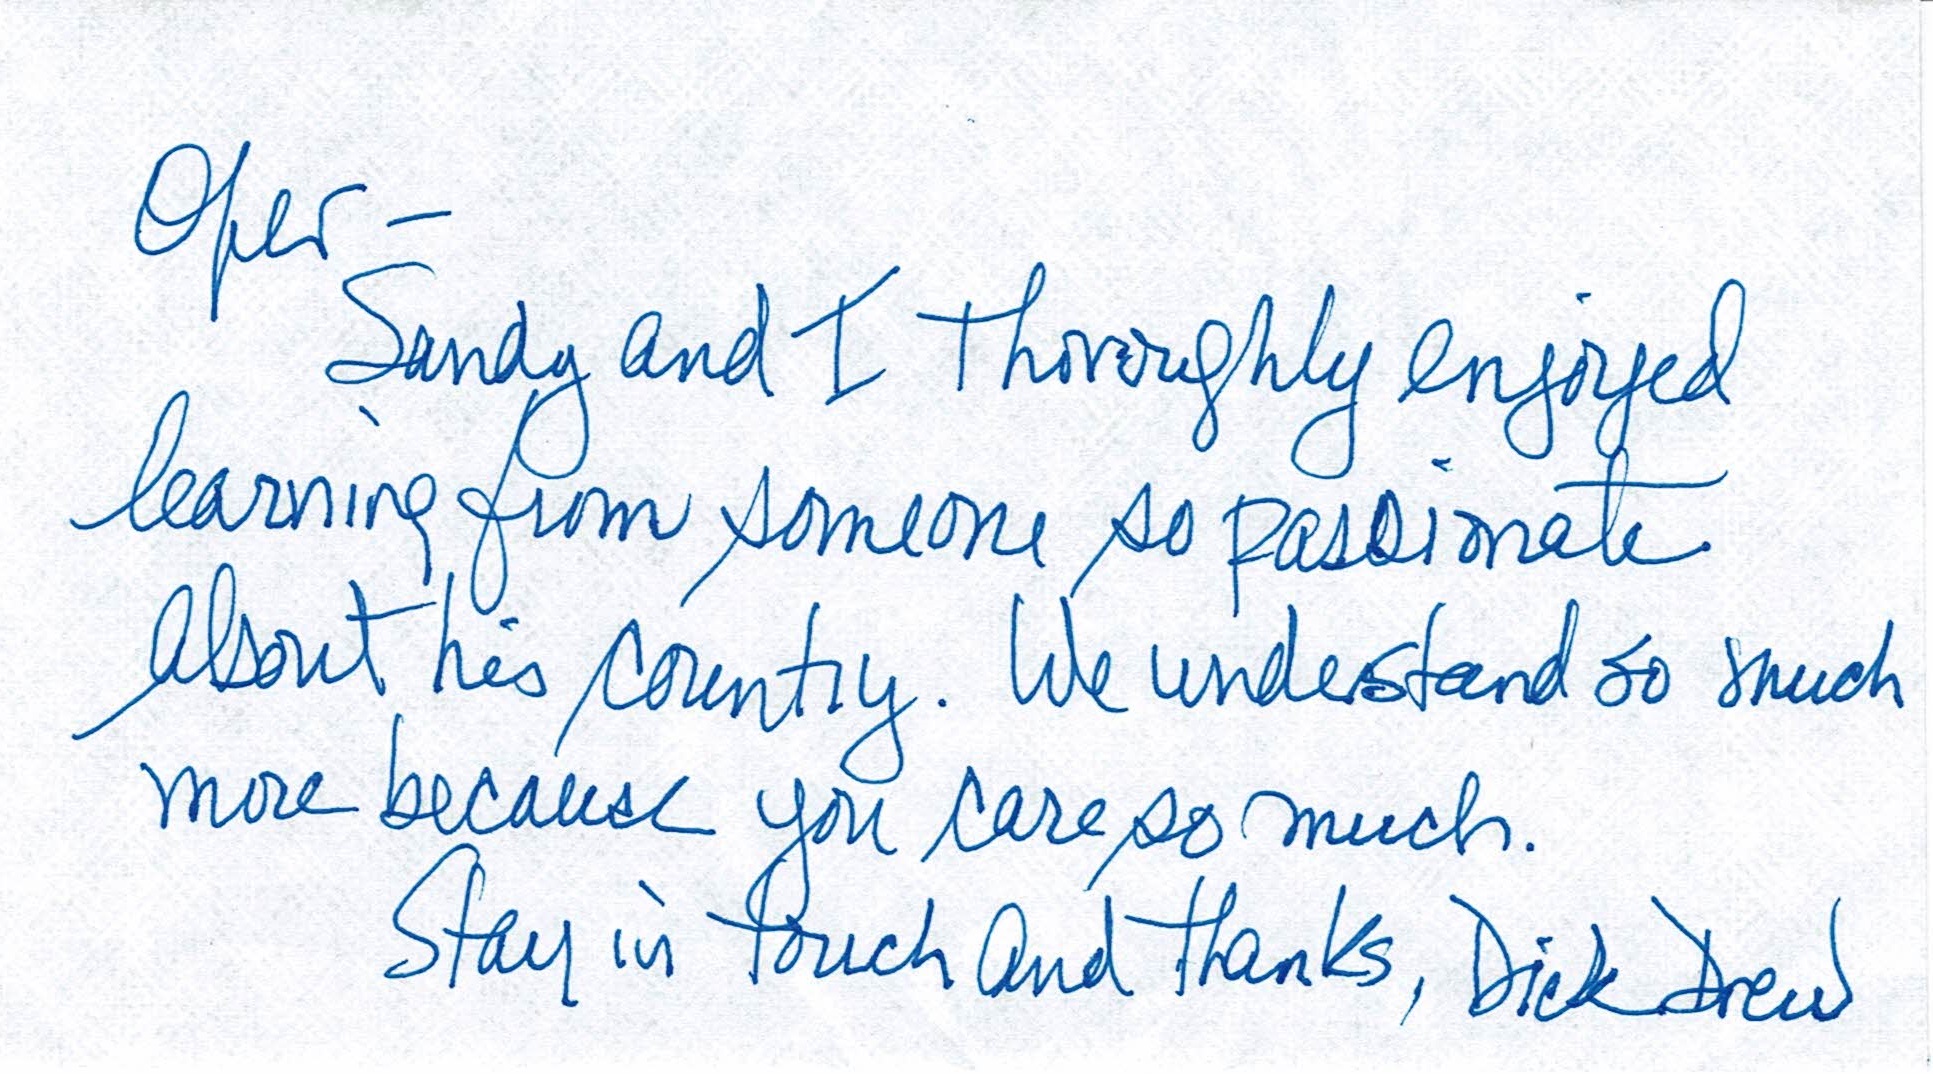 Ofer –
Sandy and I thoroughly enjoyed
learning from someone so passionate
about his country. We understand so much
more because you care so much.
Stay in touch and thanks, Dick Drew